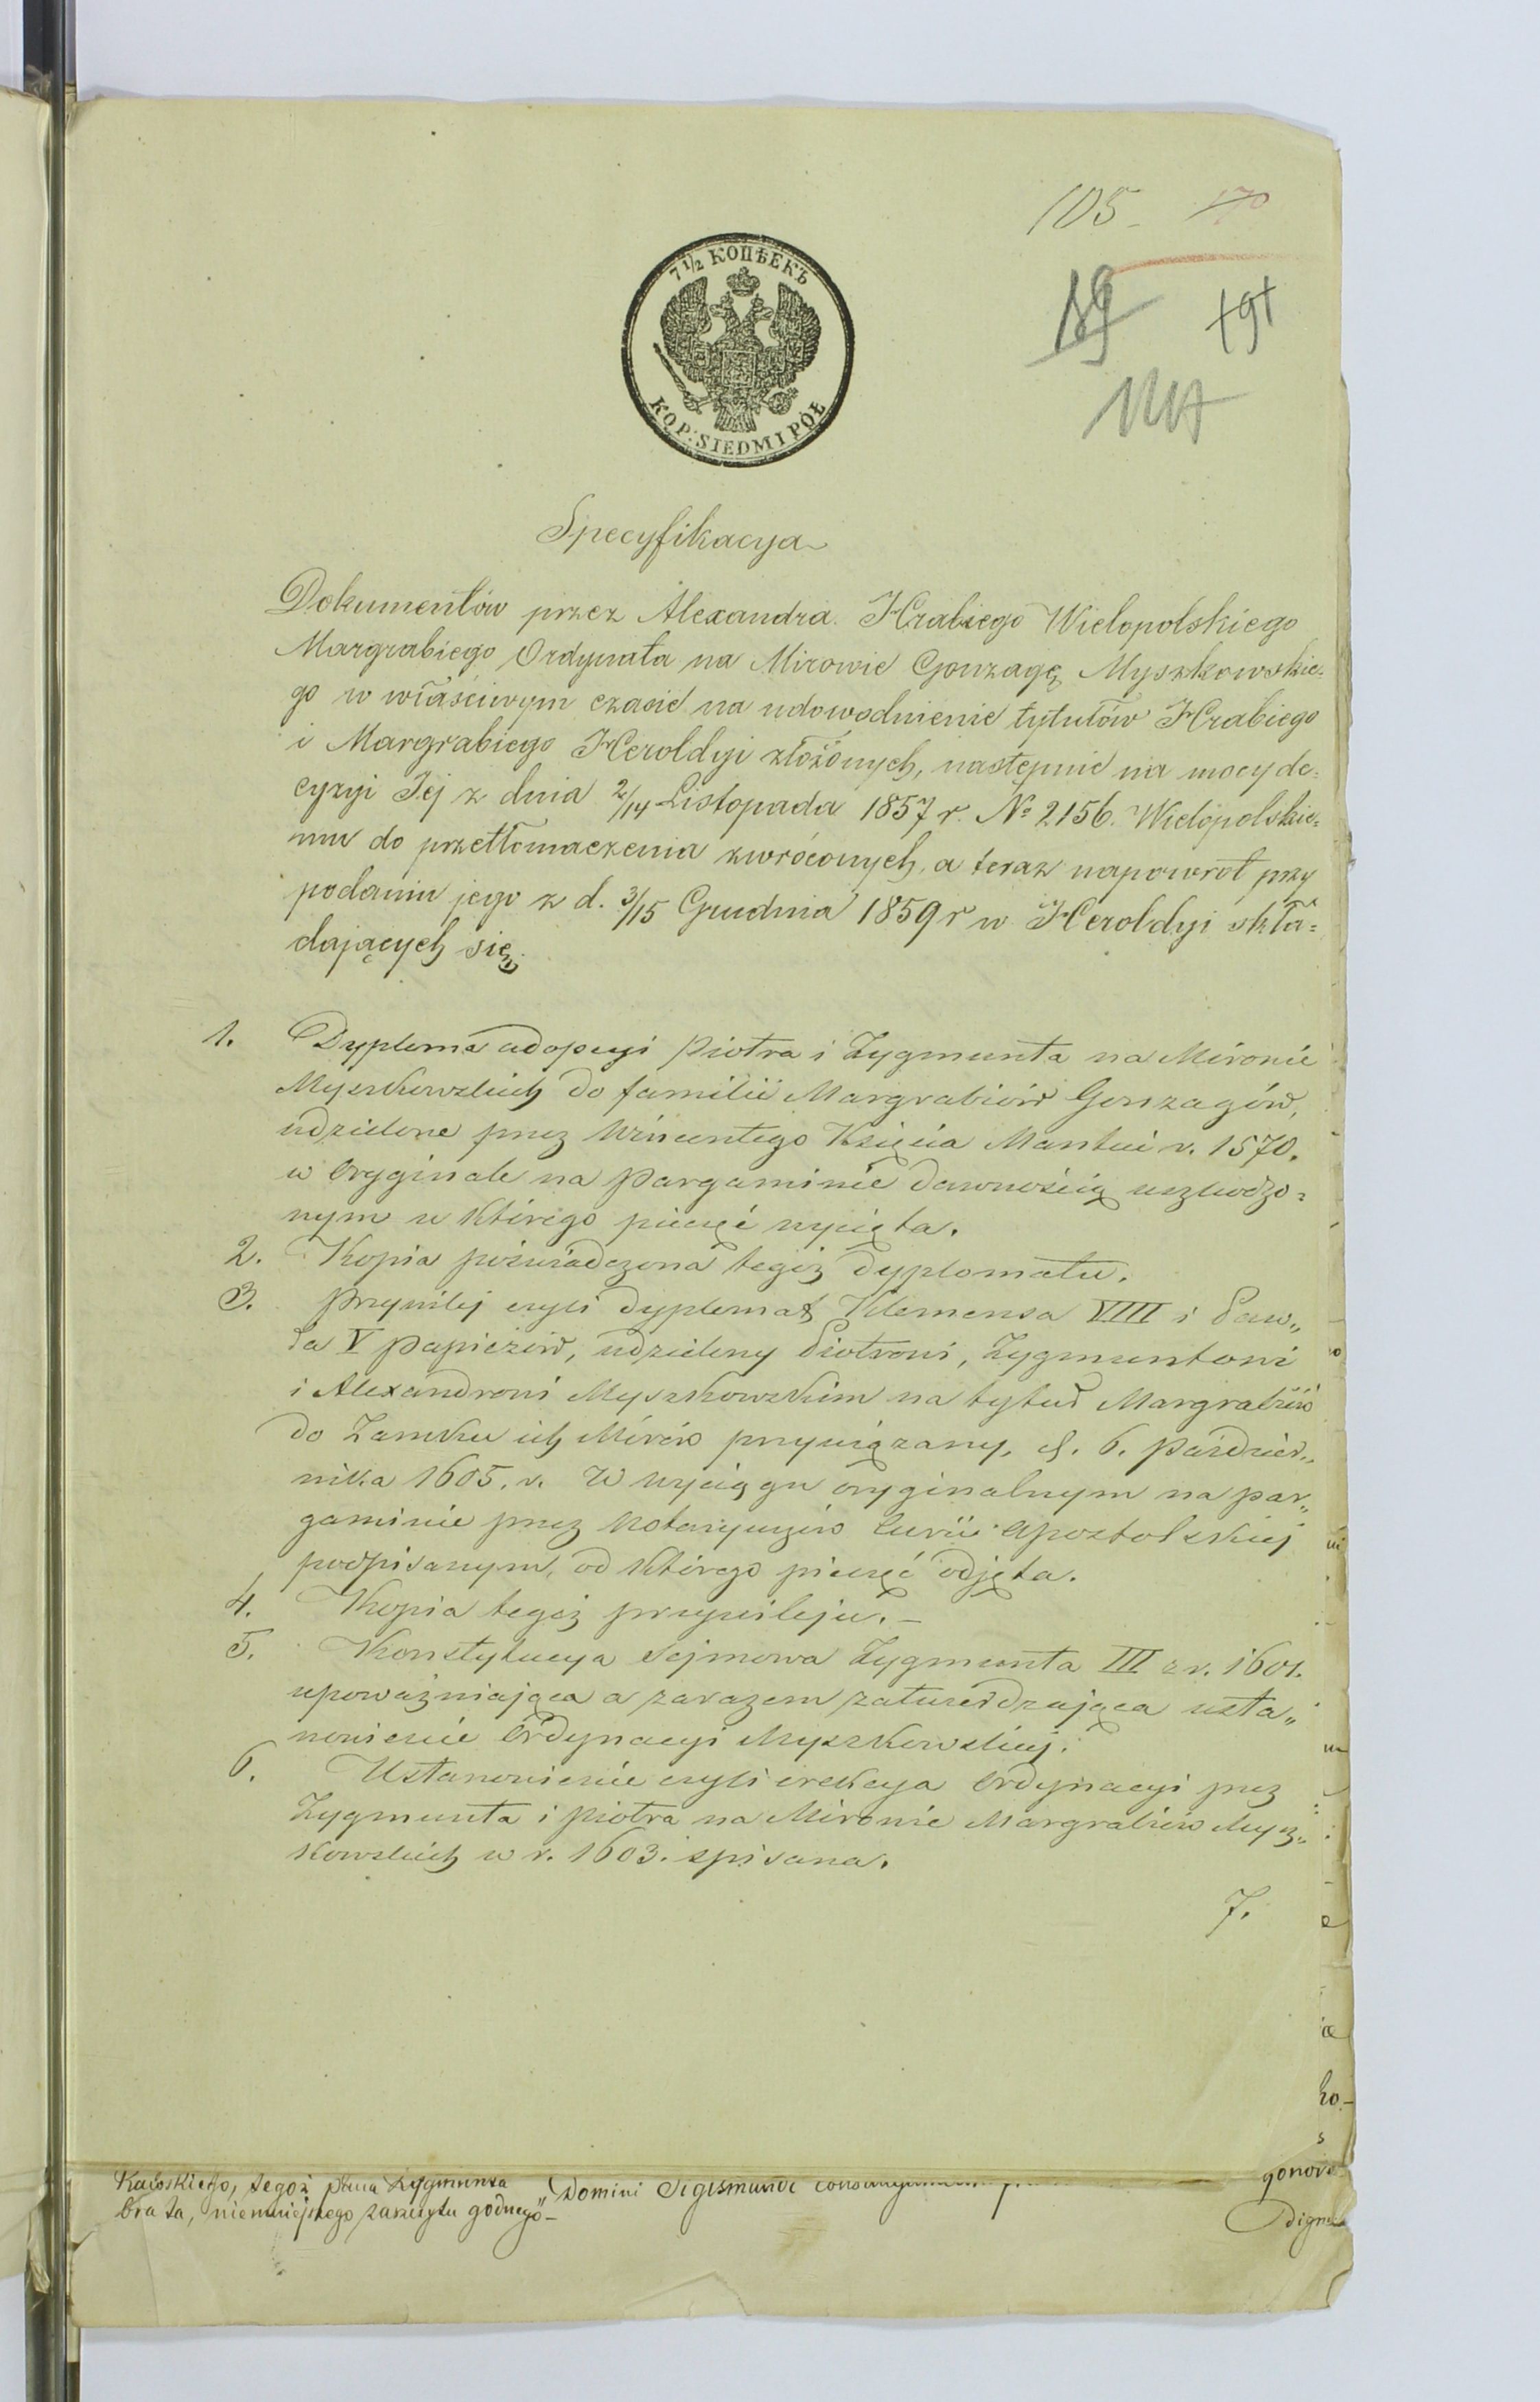 105 170
189 191
7 1/2 КОПѢЕКЪ
KOP: SIEDM I PÓŁ
Specyfikacya
Dokumentów przez Alexandra Hrabiego Wielopolskiego
Margrabiego Ordynata na Mirowie Gonzagę Myszkowskie=
go w właściwym czasie na udowodnienie tytułów Hrabiego
i Margrabiego Heroldyi złożonych, następnie na mocy de=
cyzyi Jej z dnia 2/14 Listopada 1857 r. № 2156. Wielopolskie=
mu do przetłomaczenia zwróconych, a teraz napowrót przy
podaniu jego z d. 3/15 Grudnia 1859 r w Heroldyi skła=
dających się.
1. Dyploma adopcyi Piotra i Zygmunta na Mirowie
Myszkowskich do familii Margrabiów Gonzagów,
udzielone przez Wincentego Księcia Mantui r. 1570.
w Oryginale na pargaminie dawnością uszkodzo=
nym u którego pieczęć wycięta.
2. Kopia poświadczona tegoż dyplomatu.
3. Przywilej czyli dyplomat Klemensa VIIII i Paw„
ła V Papieżów, udzielony Piotrowi, Zygmuntowi
i Alexandrowi Myszkowskim na tytuł Margrabiów
do Zamku ich Mirów przywiązany, d. 6. Paździer„
nika 1605. r. W wyciągu oryginalnym na par„
gaminie przez Notaryuszów Curii Apostolskiej
podpisanym, od którego pieczęć odjęta.
4. Kopia tegoż przywileju. –
5. Konstytucya Sejmowa Zygmunta III z r. 1601.
upoważniająca a zarazem zatwierdzająca usta„
nowienie Ordynacyi Myszkowskiej.
6. Ustanowienie czyli erekcya Ordynacyi przez
Zygmunta i Piotra na Mirowie Margrabiów Mysz„
kowskich w r. 1603. spisana.
7.
tegoż Pana Zygmunta Domini Sigismundi
brata, niemniejszego zaszczytu godnego–